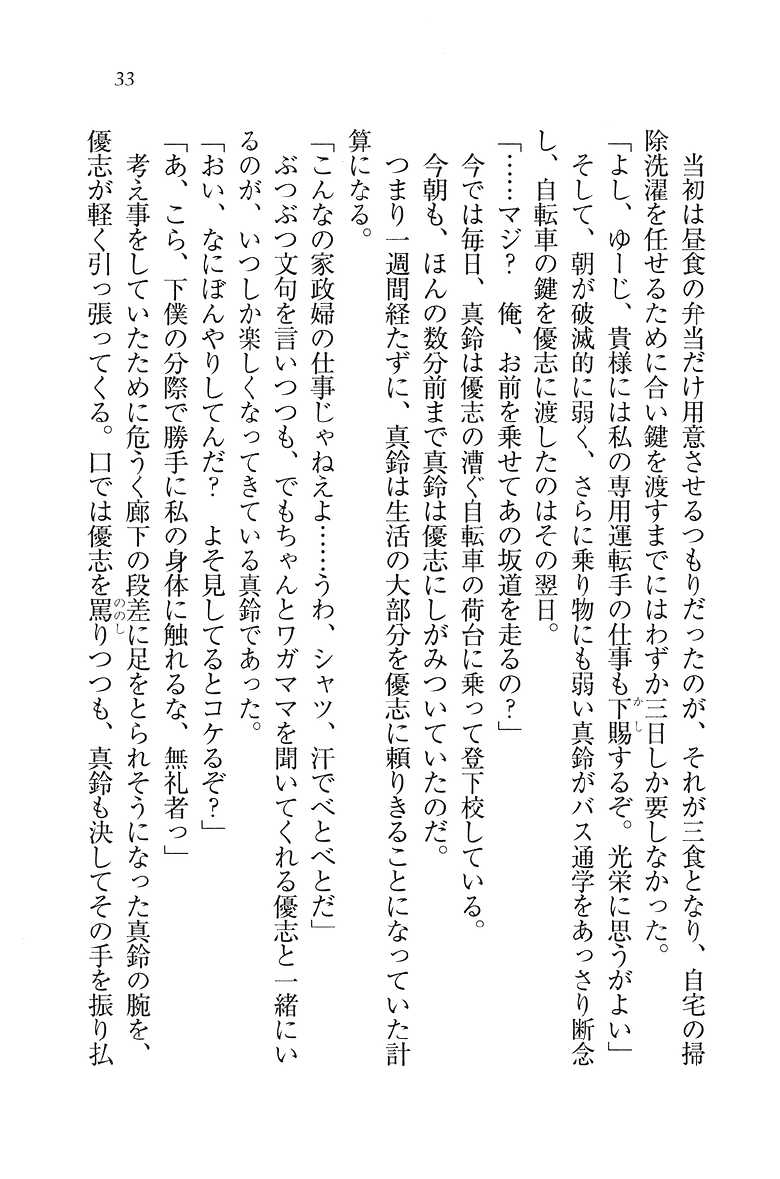 33
当初は昼食の弁当だけ用意させるつもりだったのが、それが三食となり、自宅の掃
除洗濯を任せるために合い鍵を渡すまでにはわずか三日しか要しなかった。
「よし、ゆーじ、貴様には私の専用運転手の仕事も下賜するぞ。光栄に思うがよい」
そして、朝が破滅的に弱く、さらに乗り物にも弱い真鈴がバス通学をあっさり断念
し、自転車の鍵を優志に渡したのはその翌日。
「……マジ？　俺、お前を乗せてあの坂道を走るの？」
今では毎日、真鈴は優志の漕ぐ自転車の荷台に乗って登下校している。
今朝も、ほんの数分前まで真鈴は優志にしがみついていたのだ。
つまり一週間経たずに、真鈴は生活の大部分を優志に頼りきることになっていた計
算になる。
「こんなの家政婦の仕事じゃねえよ……うわ、シャツ、汗でべとべとだ」
ぶつぶつ文句を言いつつも、でもちゃんとワガママを聞いてくれる優志と一緒にい
るのが、いつしか楽しくなってきている真鈴であった。
「おい、なにぼんやりしてんだ？　よそ見してるとコケるぞ？」
「あ、こら、下僕の分際で勝手に私の身体に触れるな、無礼者っ」
考え事をしていたために危うく廊下の段差に足をとられそうになった真鈴の腕を、
優志が軽く引っ張ってくる。口では優志を罵りつつも、真鈴も決してその手を振り払